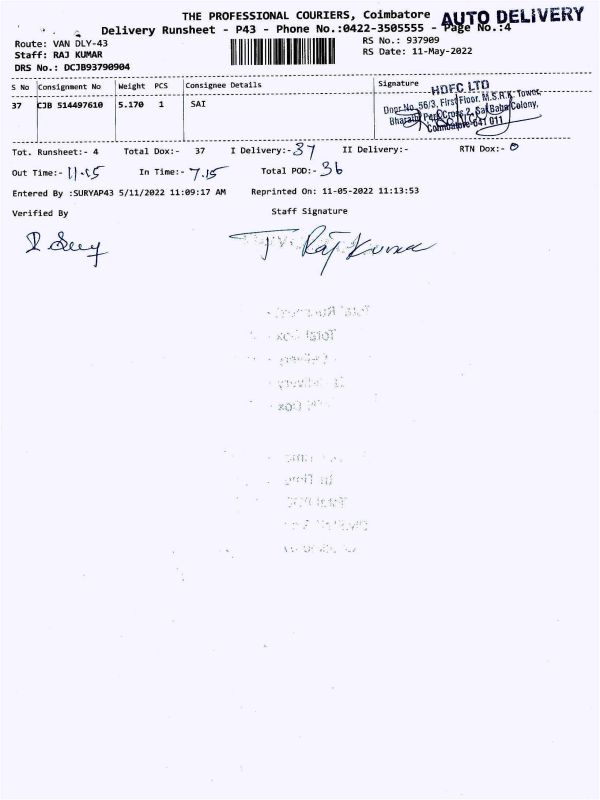 THE PROFESSIONAL COURIERS, Coimbatore AUTO DELIVERY
Delivery Runsheet - P43 - Phone No.:0422-3505555 - Page No.:4
Route: VAN DLY-43 RS No.: 937909
Staff: RAJ KUMAR RS Date: 11-May-2022
DRS No.: DCJB93790904
S No Consignment No Weight PCS Consignee Details Signature
37 CJB 514497610 5.170 1 SAI
HDFC LTD
Door No. 56/3, First Floor, M.S.R.K. Tower,
Bharathi Park Cross 2, Sai Baba Colony,
Coimbatore-641 011
Tot. Runsheet:- 4 Total Dox:- 37 I Delivery:- 37 II Delivery:- RTN Dox:- 0
Out Time:- 11.15 In Time:- 7.15 Total POD:- 36
Entered By :SURYAP43 5/11/2022 11:09:17 AM Reprinted On: 11-05-2022 11:13:53
Verified By Staff Signature
T Raj Kumar